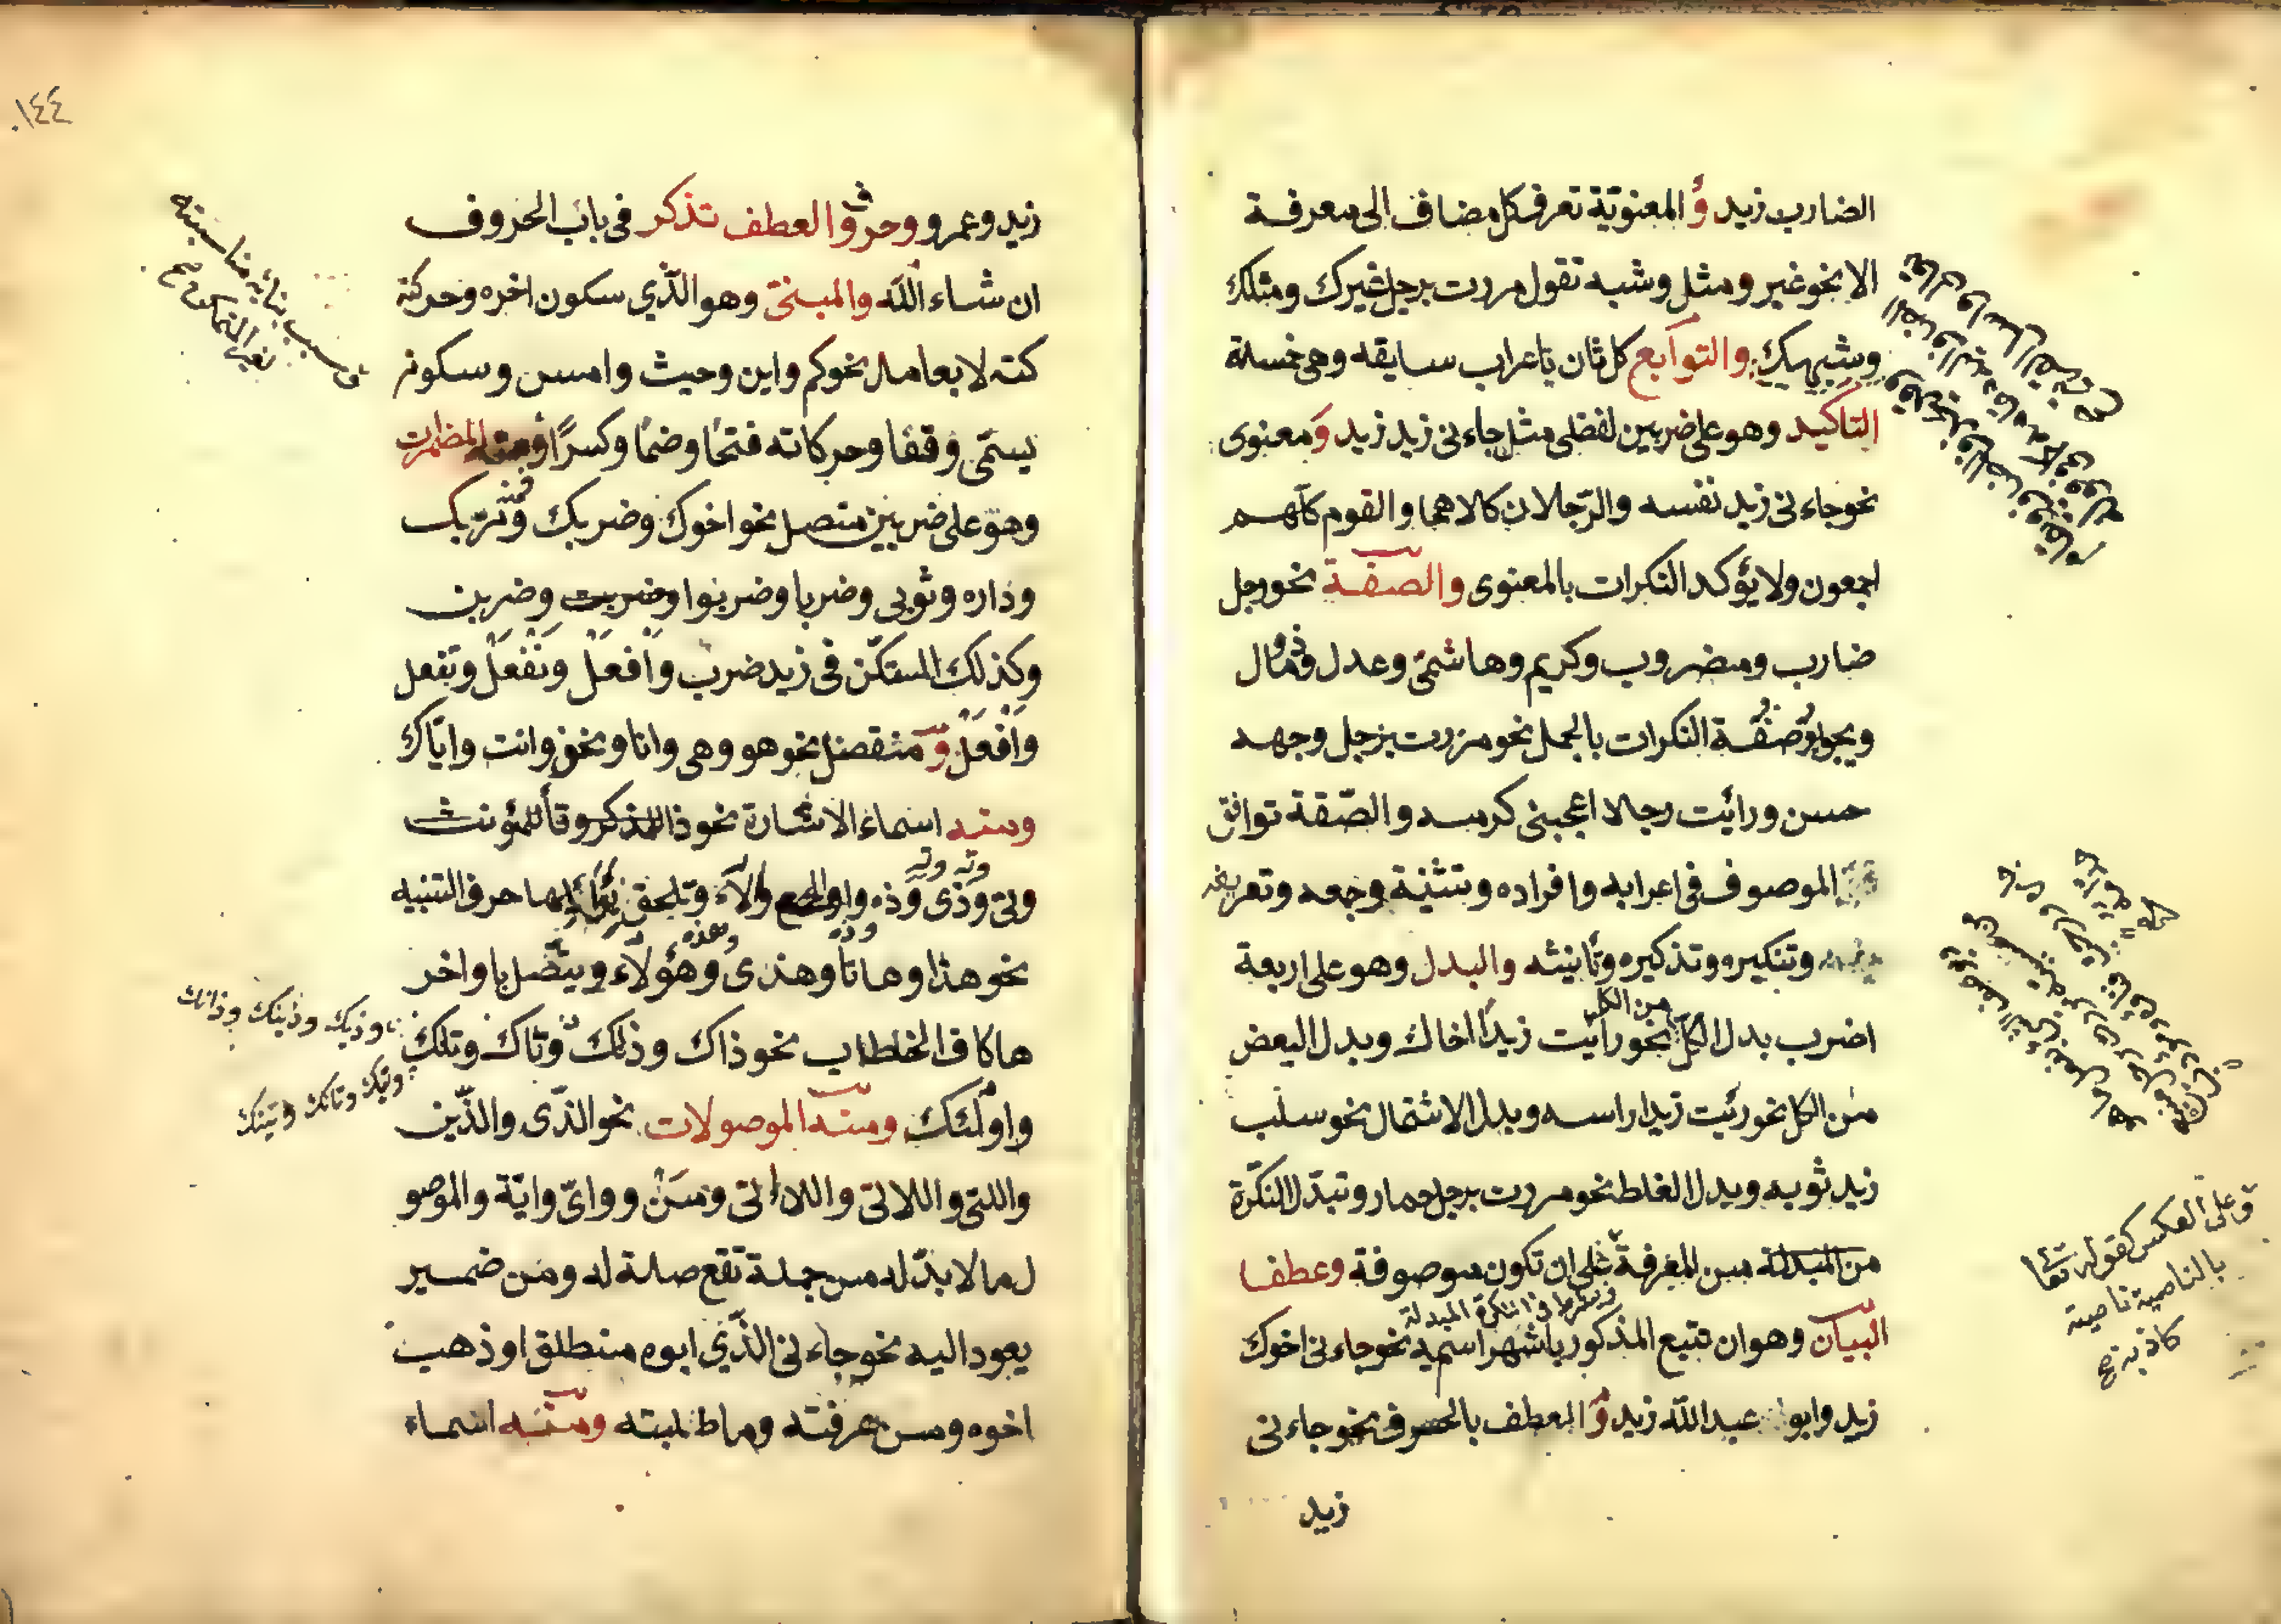 الضارب زيد و المعنوية تعرف كل مضاف الى معرفة
الا نحو غير ومثل وشبه تقول مررت برجل غيرك ومثلك
وشبيهك والتوابع كل ثان باعراب سابقه وهى خمسة
التاكيد وهو على ضربين لفظى مثل جاءنى زيد زيد و معنوى
نحو جاءنى زيد نفسه والرّجلان كلاهما والقوم كلّهم
اجمعون ولا يؤكد النكرات بالمعنوى والصفة نحو رجل
ضارب ومضروب وكريم وهاشمىّ وعدل وذو مال
ويجوز صفة النكرات بالجمل نحو مررت برجل وجهه
حسن ورايت رجلا اعجبنى كرمه والصّفة توافق
الموصوف فى اعرابه وافراده وتثنية وجمعه وتعريفه
وتنكيره وتذكيره وتانيثه والبدل وهو على اربعة
اضرب بدل الكلّ من الكل نحو رايت زيدًا اخاك وبدل البعض
من الكل نحو رئيت زيدا راسه وبدل الاشتمال نحو سلب
زيد ثوبه وبدل الغلط نحو مررت برجل حمار وتبدّل النكرة
من المبدلة من المعرفة على ان تكون موصوفة وعطف
وشرط فى النكرة المبدلة
البيان وهو ان تتبع المذكور باشهر اسميه نحو جاءنى اخوك
زيد وابو عبد اللّه زيد و العطف بالحروف نحو جاءنى
زيد
وعلى العكس كقوله تعا
بالناصية ناصية
كاذبة صح
١٤٤
زيد وعمرو وحروف العطف تذكر فى باب الحروف
ان شاء اللّه والمبنىّ وهو الّذي سكون اخره وحركته
كته لا بعامل نحو كم واين وحيث وامس وسكونه
يسمّى وقفا وحركاته فتحًا وضمًا وكسرًا ومنه المضمرات
وهو على ضربين متصل نحو اخوك وضربك ومرّبك
وداره وثوبى وضربا وضربوا وضربت وضربن
وكذلك المستكنّ فى زيد ضرب وافعل ونفعل وتفعل
وافعل و منفصل نحو هو وهى وانا ونحن وانت وايّاك
ومنه اسماء الاشارة نحو ذا للمذكر وتا للمئونث
وته وته
وتى وذى وذه واولى الجمع والاء وتلحق باوائلها حرف التنبيه
نحو هذا وهاتا وهذى وهذه وهؤلاء ويتّصل باواخر
ها كاف الخطاب نحو ذاك وذلك وتاك وتلك
وذيك وذينك وذانك
وتيك وتانك وتينك
واولئك ومنه الموصولات نحو الّذى والّذين
واللتى واللاتى واللائى ومن وما وايّ وايّة والموصو
ل ما لا بدّ له من جملة تقع صلة له ومن ضمير
يعود اليه نحو جاءنى الّذي ابوه منطلق او ذهب
اخوه ومن عرفته وما طلبته ومنه اسماء
بسبب بنائه مناسبته
بغير المتمكن صح